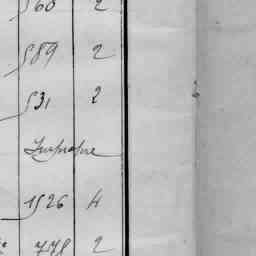 560 2
589 2
531 2
Impropre
1526 4
778 2